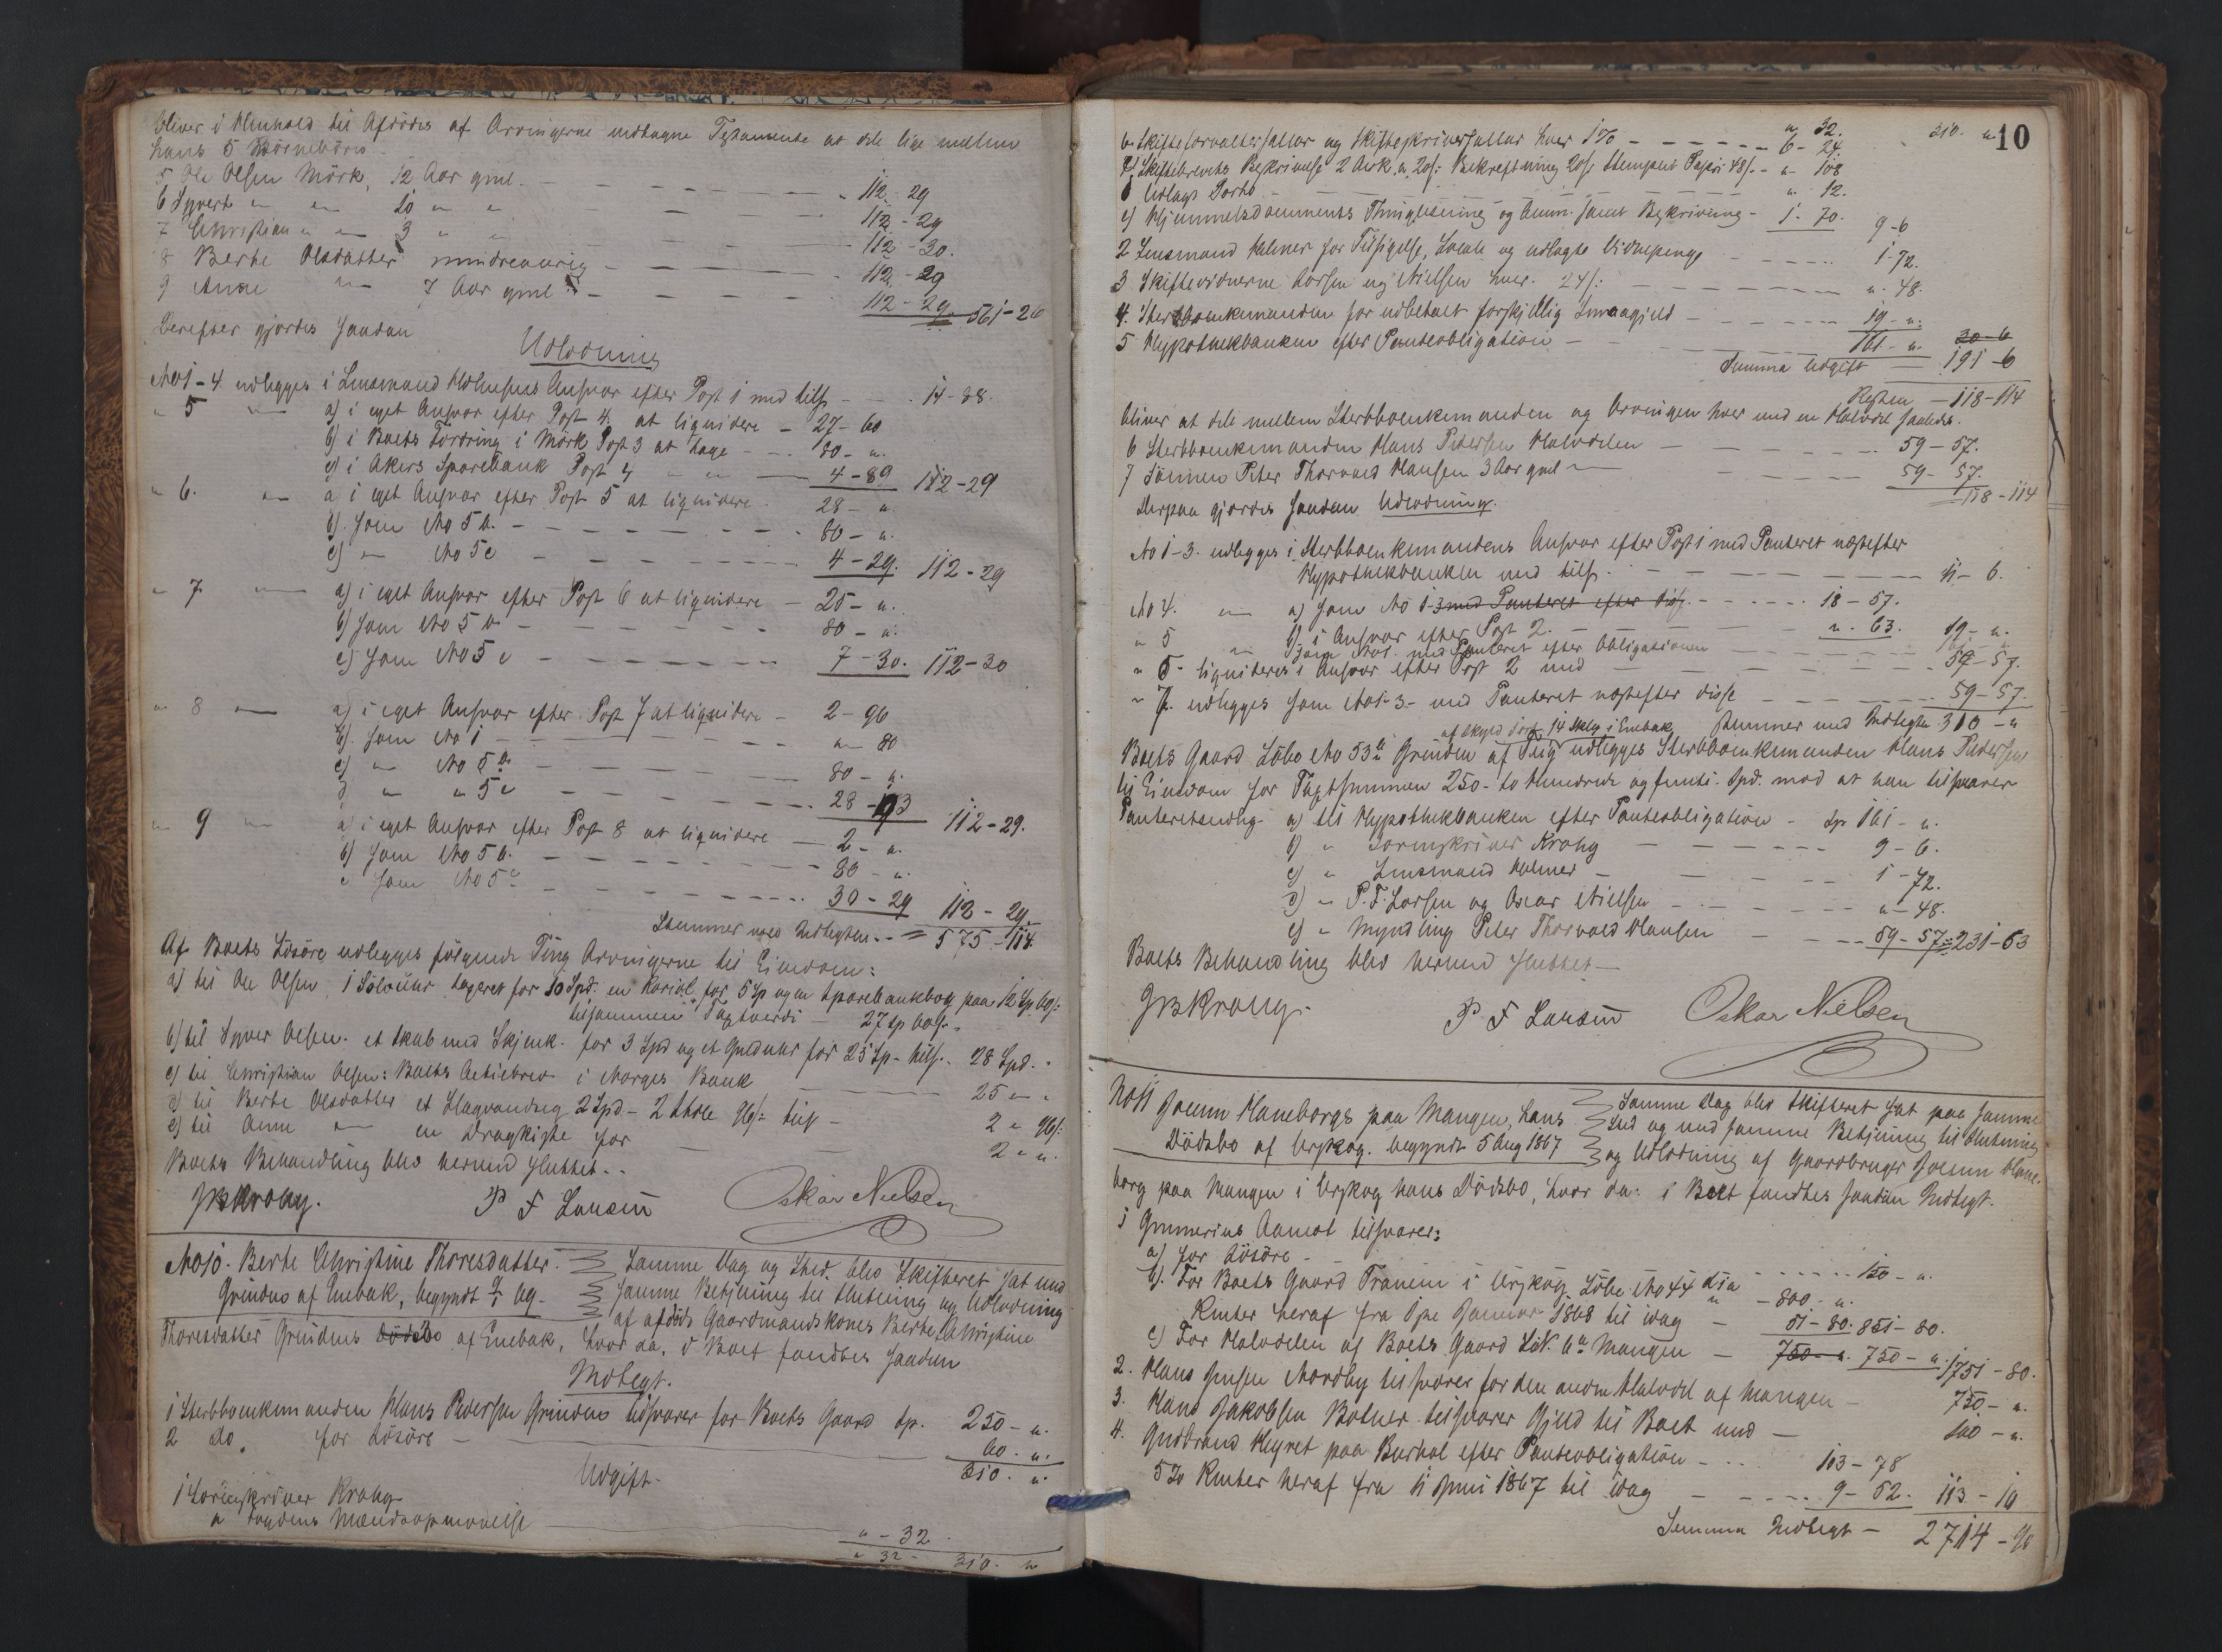 bliver i Henhold til Afdödes af Arvingerne vedtagne Testamente at dele lige mellem
hans 5 Börnebörn
5 Ole Olsen Mörk, 12 Aar gml. - - - - - " 112 - 29
6 Syvert " " 10 " " - - - 112 - 29
7 Christian " " 3 " " - - - 112 - 30.
8 Berthe Olsdatter mindreaarig - - - - 112 - 29
9 Anne " 7 Aar gml - - - - 112 - 29 561 - 26
Derefter gjordes saadan
Udlodning
No 1 - 4. udlegges i Lensmand Holmsens Ansvar efter Post 1 med tils. - - 14 - 88.
" 5 " a) i eget Ansvar efter Post 4. at liqvidere - 27 - 60
b) i Boets Fordring i Mörk Post 3 at have - - 80 - ".
c) i Akers Sparebank Post 4 " " 4 - 89 112 - 29
" 6. " a i eget Ansvar efter Post 5 at liqvidere. - 28 - "
b). som No 5 b. - - - - - 80 - ".
c) " No 5 c - - - - - 4 - 29. 112 - 29
" 7 " a) i eget Ansvar efter Post 6 at liqvidere - 25 - ".
b) som No 5 b - - - - - 80 - ".
c) som No 5 c - - - - - 7 - 30. 112 - 30
" 8 " a) i eget Ansvar efter Post 7 at liqvidere - 2 - 96
b). som No 1 - - - - - " - 80
c) " No 5 b. - - - - - 80 - ".
d " " 5 c - - - - - 28 - 93 112 - 29.
" 9 " a i eget Ansvar efter Post 8 at liqvidere - 2 - ".
b) som No 5 b. - - - - - 80 - ".
c som No 5 c - - - - - 30 - 29 112 - 29.
Stemmer med Indtegten - - = 575 - 114.
Af Boets Lösöre udlegges fölgende Ting Arvingerne til Eiendom:
a) til Ole Olsen 1 Sölvuhr taxeret for 10 Spd. en Kariol for 5 Sp og en Sparebankbog paa 12 Sp 60 s:
tilsammen Taxtverdi - 27 sp 60 s. "
b) til Syver Olsen. et Skab med Skjenk. for 3 Spd og et Gulduhr for 25 Sp - tils. - 28 Spd. "
c) til Christian Olsen: Boets Actiebrev i Norges Bank 25 " - "
d) til Berte Olsdatter et Slagvandseg 2 Spd - 2 Stole 96 s: tils - 2 " 96 s:
e) til Anne " en Dragkiste for - 2 " ".
Boets Behandling blev hermed sluttet. -
JBKrohg. P F Larsen Oskar Nielsen
No 10. Berte Christine Thoresdatter Samme Dag og Sted. blev Skifteret sat med
Grindens af Enebak, begyndt samme Betjening til Slutning og Udlodning
af afdöde Gaardmandskones Berte Christine
Thoresdatter Grindens Dödsbo af Enebak, hvor da, i Boet fandtes saadan
Indtegt.
1 Sterbboenkemanden Hans Pedersen Grinden tilsvarer for Boets Gaard Sp. 250 - ".
2 do. for Lösöre - 60 - ".
310. ".
Udgift.
1 Sorenskriver Krohg
a Mændsopnævelse " - 32.
" 32 - 310. "
310. " 10
b Skifteforvaltersallar og Skifteskriversallar hver 1% - - - - - 6 - 24.
c Skiftebrevets Beskrivelse 2 Ark a. 20 s: Bekreftning 20 s: Stemplet Papir 48 s. - " 108
d Udlagt Porto - - - " 12.
e) Hjemmelsdocuments Thinglesning og Anm. samt Beskrivning - 1 - 70. 9 - 6
2 Lensmand Holmer for Tilsigelse, Locale og udlagte Vidnepenge - - - - 1 - 72.
3 Skiftevidnerne Larsen og Nielsen hver. 24 s: - - - - " 48.
4. Sterbboenkemanden for udbetalt forskjellig Smaagjeld - - - - 19 - ".
5 Hypothekbanken efter Panteobligation - - 161 - ". 30 - 6
Summa Udgift - 191 - 6
Resten - 118 - 114
bliver at dele mellem Sterbboenkemanden og Arvingen hver med en Halvdel saaledes.
6 Sterbboenkemanden Hans Pedersen Halvdelen - - - - 59 - 57.
7 Sönnen Peter Thorvald Hansen 3 Aar gml - - - 59 - 57.
118 - 114
Herpaa gjordes saadan Udlodning.
No 1 - 3. udlegges i Sterbboenkemandens Ansvar efter Post 1 med Panteret næstefter
Hypothekbanken med tils. - - - - 11 - 6.
No 4. " a) som No 1-3 med Panteret efter disse. - - - - 18 - 57.
b) i Ansvar efter Post 2. - - - ". 63. 19 - ".
" 5 " som No 1. med Panteret efter Obligationen
" 6. liqvideres i Ansvar efter Post 2 med - - - 59 - 57.
" 7. udlegges som No 1 - 3 - med Panteret næstefter disse - - - 59 - 57.
Stemmer med Indtegten 310 - "
af Skyld i Enebak
Boets Gaard Löbe No 53 b Grinden af Teig udlegges Sterbboenkemanden Hans Pedersen
til Eiendom for Taxtsummen 250 - to Hundrede og femti - Spd. mod at han tilsvarer
Panteretsendig a) til Hypothekbanken efter Panteobligation - Sp 161 - ".
b) " Sorenskriver Krohg - - - 9 - 6.
c) " Lensmand Holmer - - - 1 - 72.
d) " P. F. Larsen og Oscar Nielsen - - - " - 48.
e) " Myndling Peter Thorvald Hansen - - - 59 - 57 = 231 - 63
Boets Behandling blev hermed sluttet -
JBKrohg. P F Larsen Oskar Nielsen
No 11 Joenn Haneborgs paa Mangen, hans Samme Dag blev Skifteret sat paa samme
Dödsbo af Urskog. begyndt 5 Aug 1867 Sted og med samme Betjening til Slutning
og Udlodning af Gaardbruger Joenn Hane-
borg paa Mangen i Urskog hans Dödsbo, hvor da: i Boet fandtes saadan Indtegt.
1 Gunnerius Aamot tilsvarer:
a) for Lösöre - - - - 150 - ".
b). For Boets Gaard Tranem i Urskog Löbe No 44 " - 800 - ".
Renter heraf fra 1ste Januar 1868 til idag - 51 - 80. 851 - 80.
c) For Halvdelen af Boets Gaard L.N. 6 a Mangen - 750 - ". 750 - ". 1751 - 80.
2. Hans Jensen Nordby tilsvarer for den anden Halvdel af Mangen - 750 - ".
3. Hans Jakobsen Botner tilsvarer Gjeld til Boet med - 100 - ".
4. Gudbrand Heyret paa Burhol efter Panteobligation - - 103 - 78
5% Renter heraf fra 11 Juni 1867 til idag - - - 9 - 52. 113 - 10
Summa Indtegt - 2714 - 90